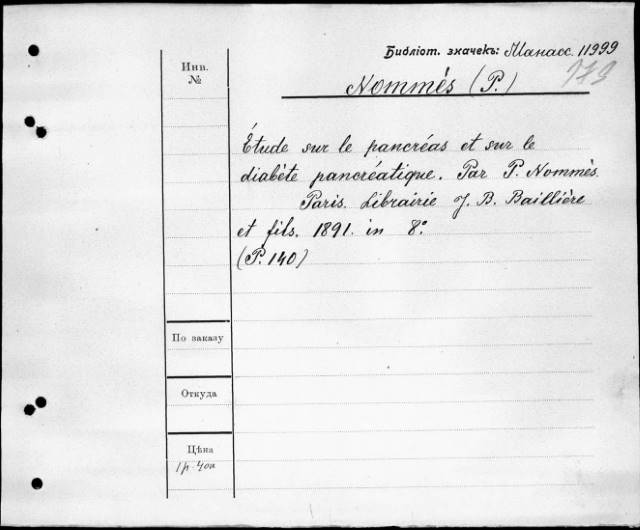 Библіот. значекъ: Манасс. 11999
Инв.
№
Nommés (P.)
Étude sur le pancréas et sur le
diabète pancréatique. Par P. Nommès.
Paris. Librairie J. B. Baillière
et fils. 1891. in 8°.
(P. 140)
По заказу
Откуда
Цѣна
1р. 40к